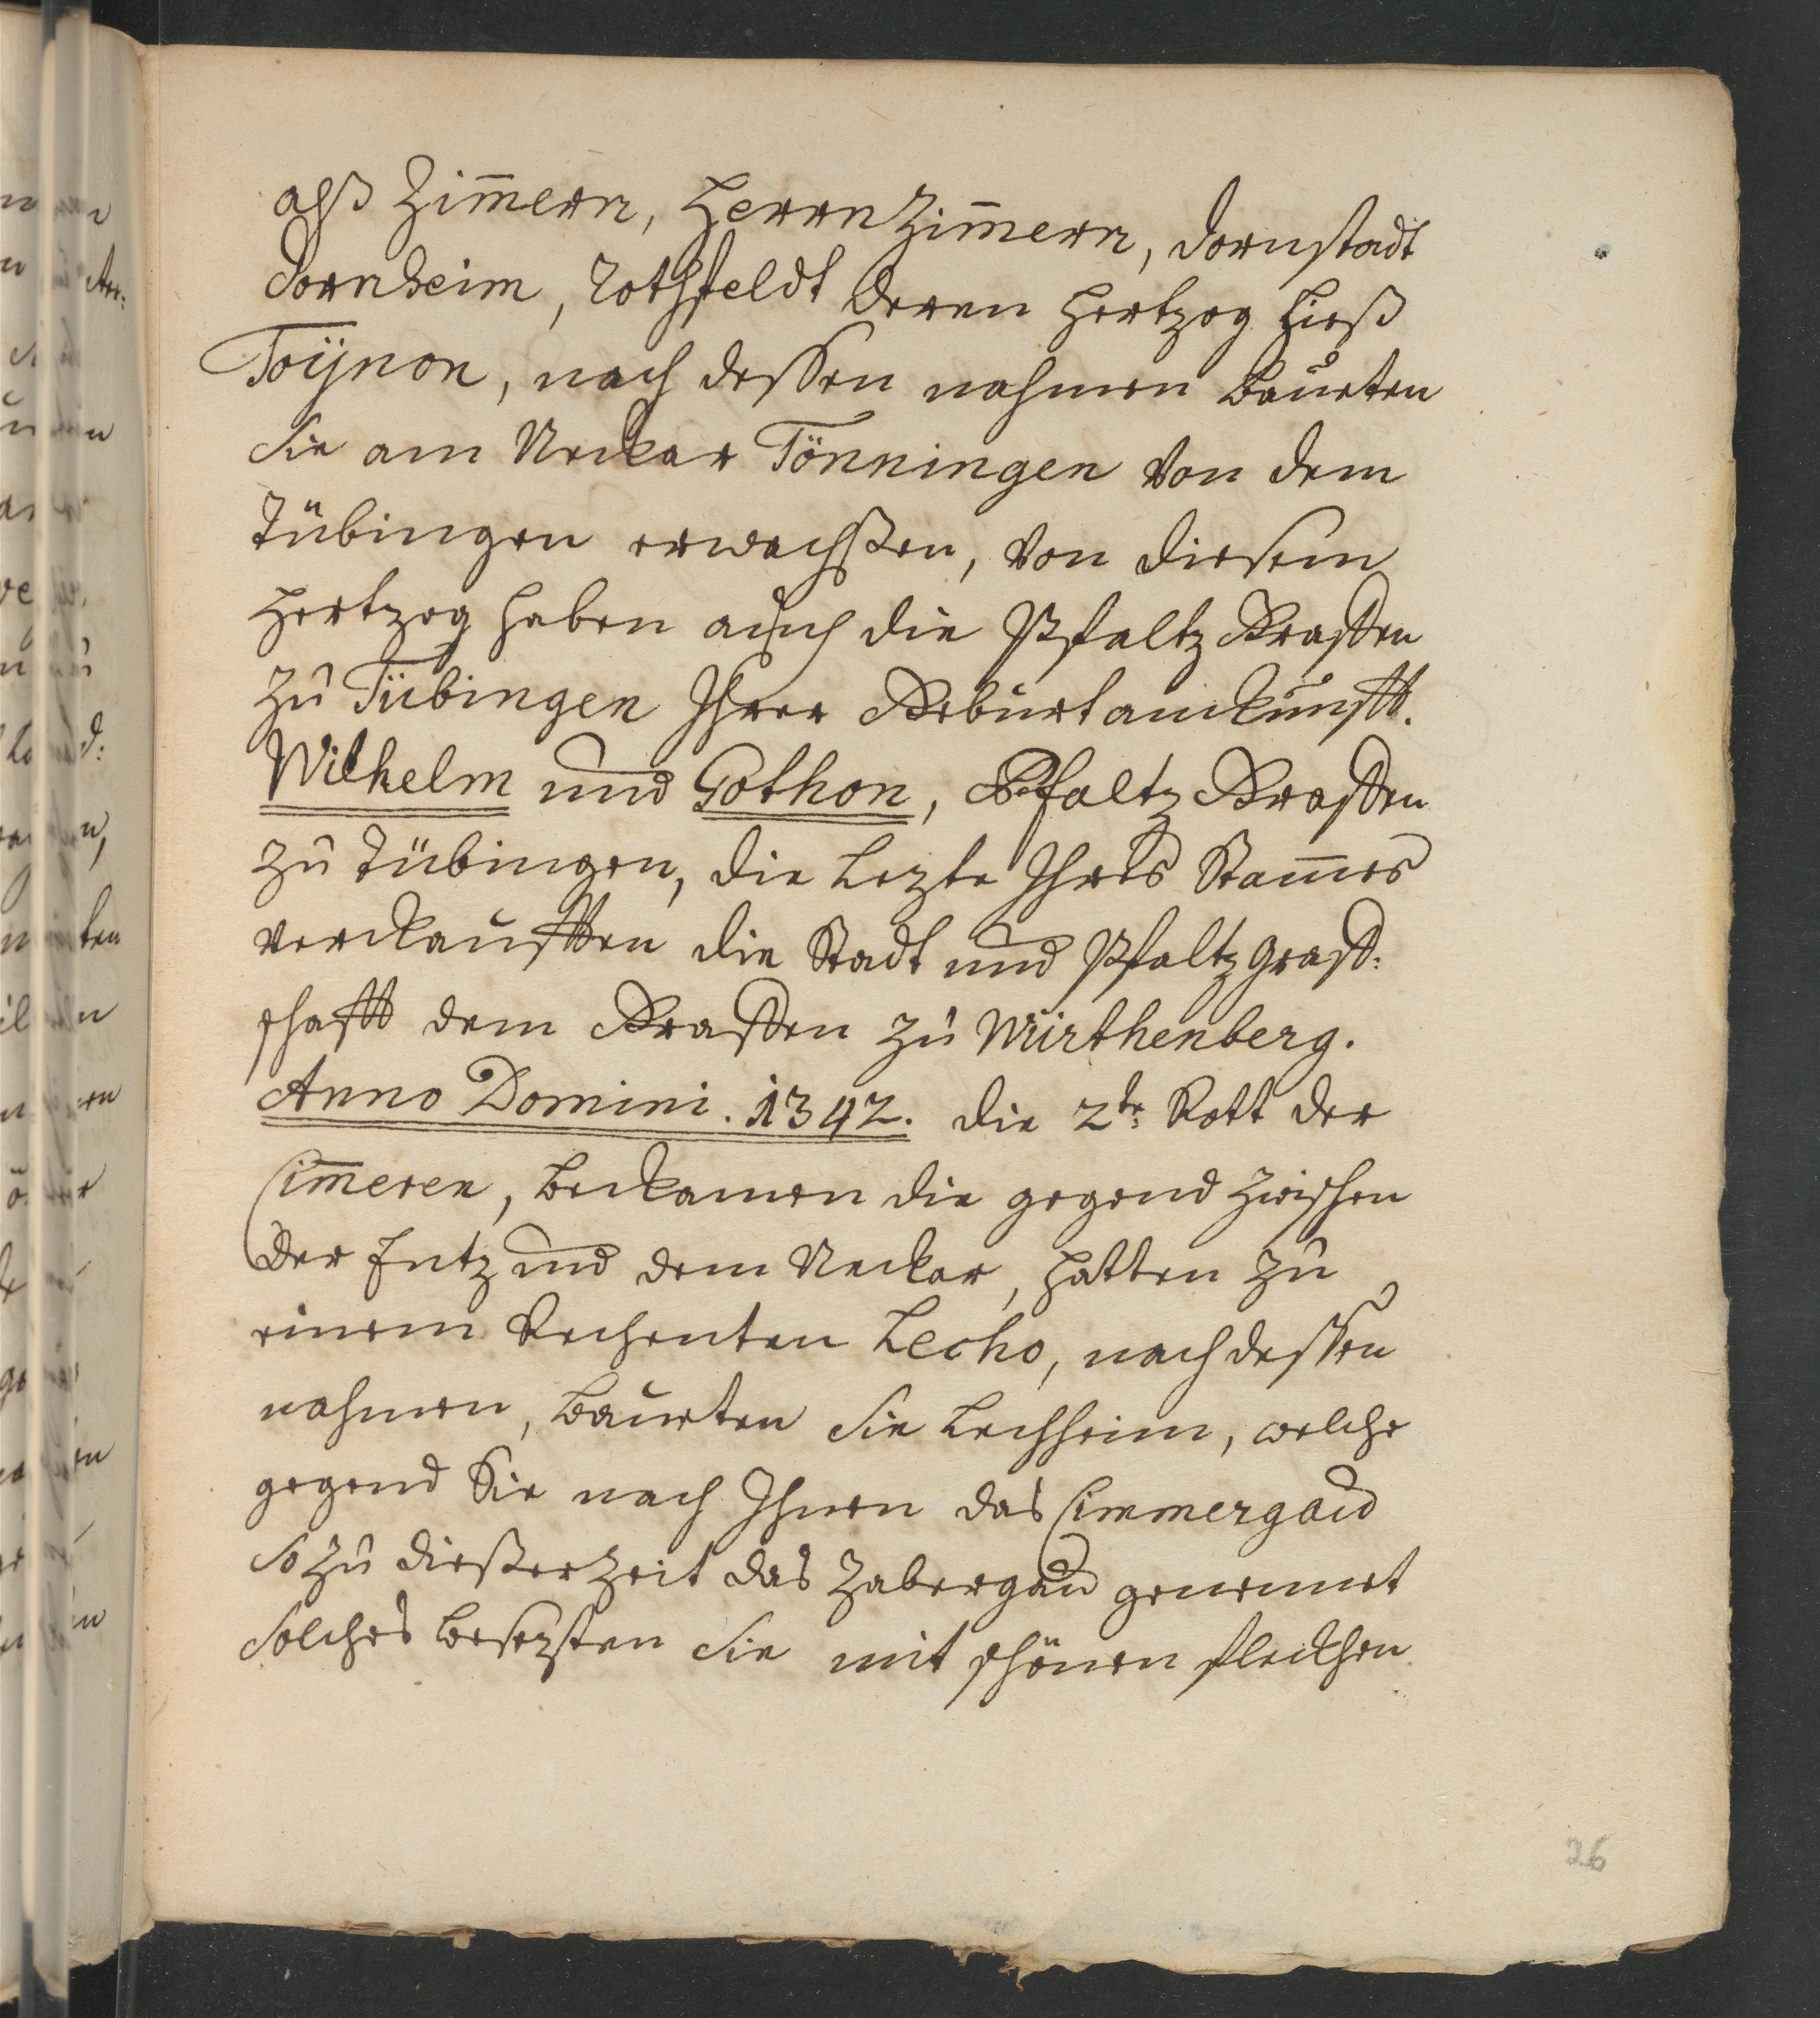 alß Zim̄ern, HerrnZim̄ern, dornstadt
dornheim, Rothfeldt deren Hertzog hieß
Toÿnon, nach dessen nahmen baueten
Sie am Neckar Tönningen von dem
Tübingen erwachßen, von diesem
Hertzog haben auch die Pfaltz Graffen
zu Tübingen Ihrer Geburt anckunfft.
Wilhelm und Gothon, Pfaltz Graffen
zu Tübingen, die Lezte Ihres Stam̄es
verckaufften die Stadt und Pfaltzgraff:
schafft dem Graffen zu Würthenberg.
Anno Domini. 1342. die 2te: Rott der
Cim̄eren, beckamen die gegend zwischen
der Entz und dem Neckar, hatten zu
einem Rechenten Lecho, nach dessen
nahmen, baueten Sie Lechheim, welche
gegend Sie nach Ihnen das Cimmergau
so zu dießer Zeit das Zabergau genennet
solches besezten Sie mit schönen fleckhen
26